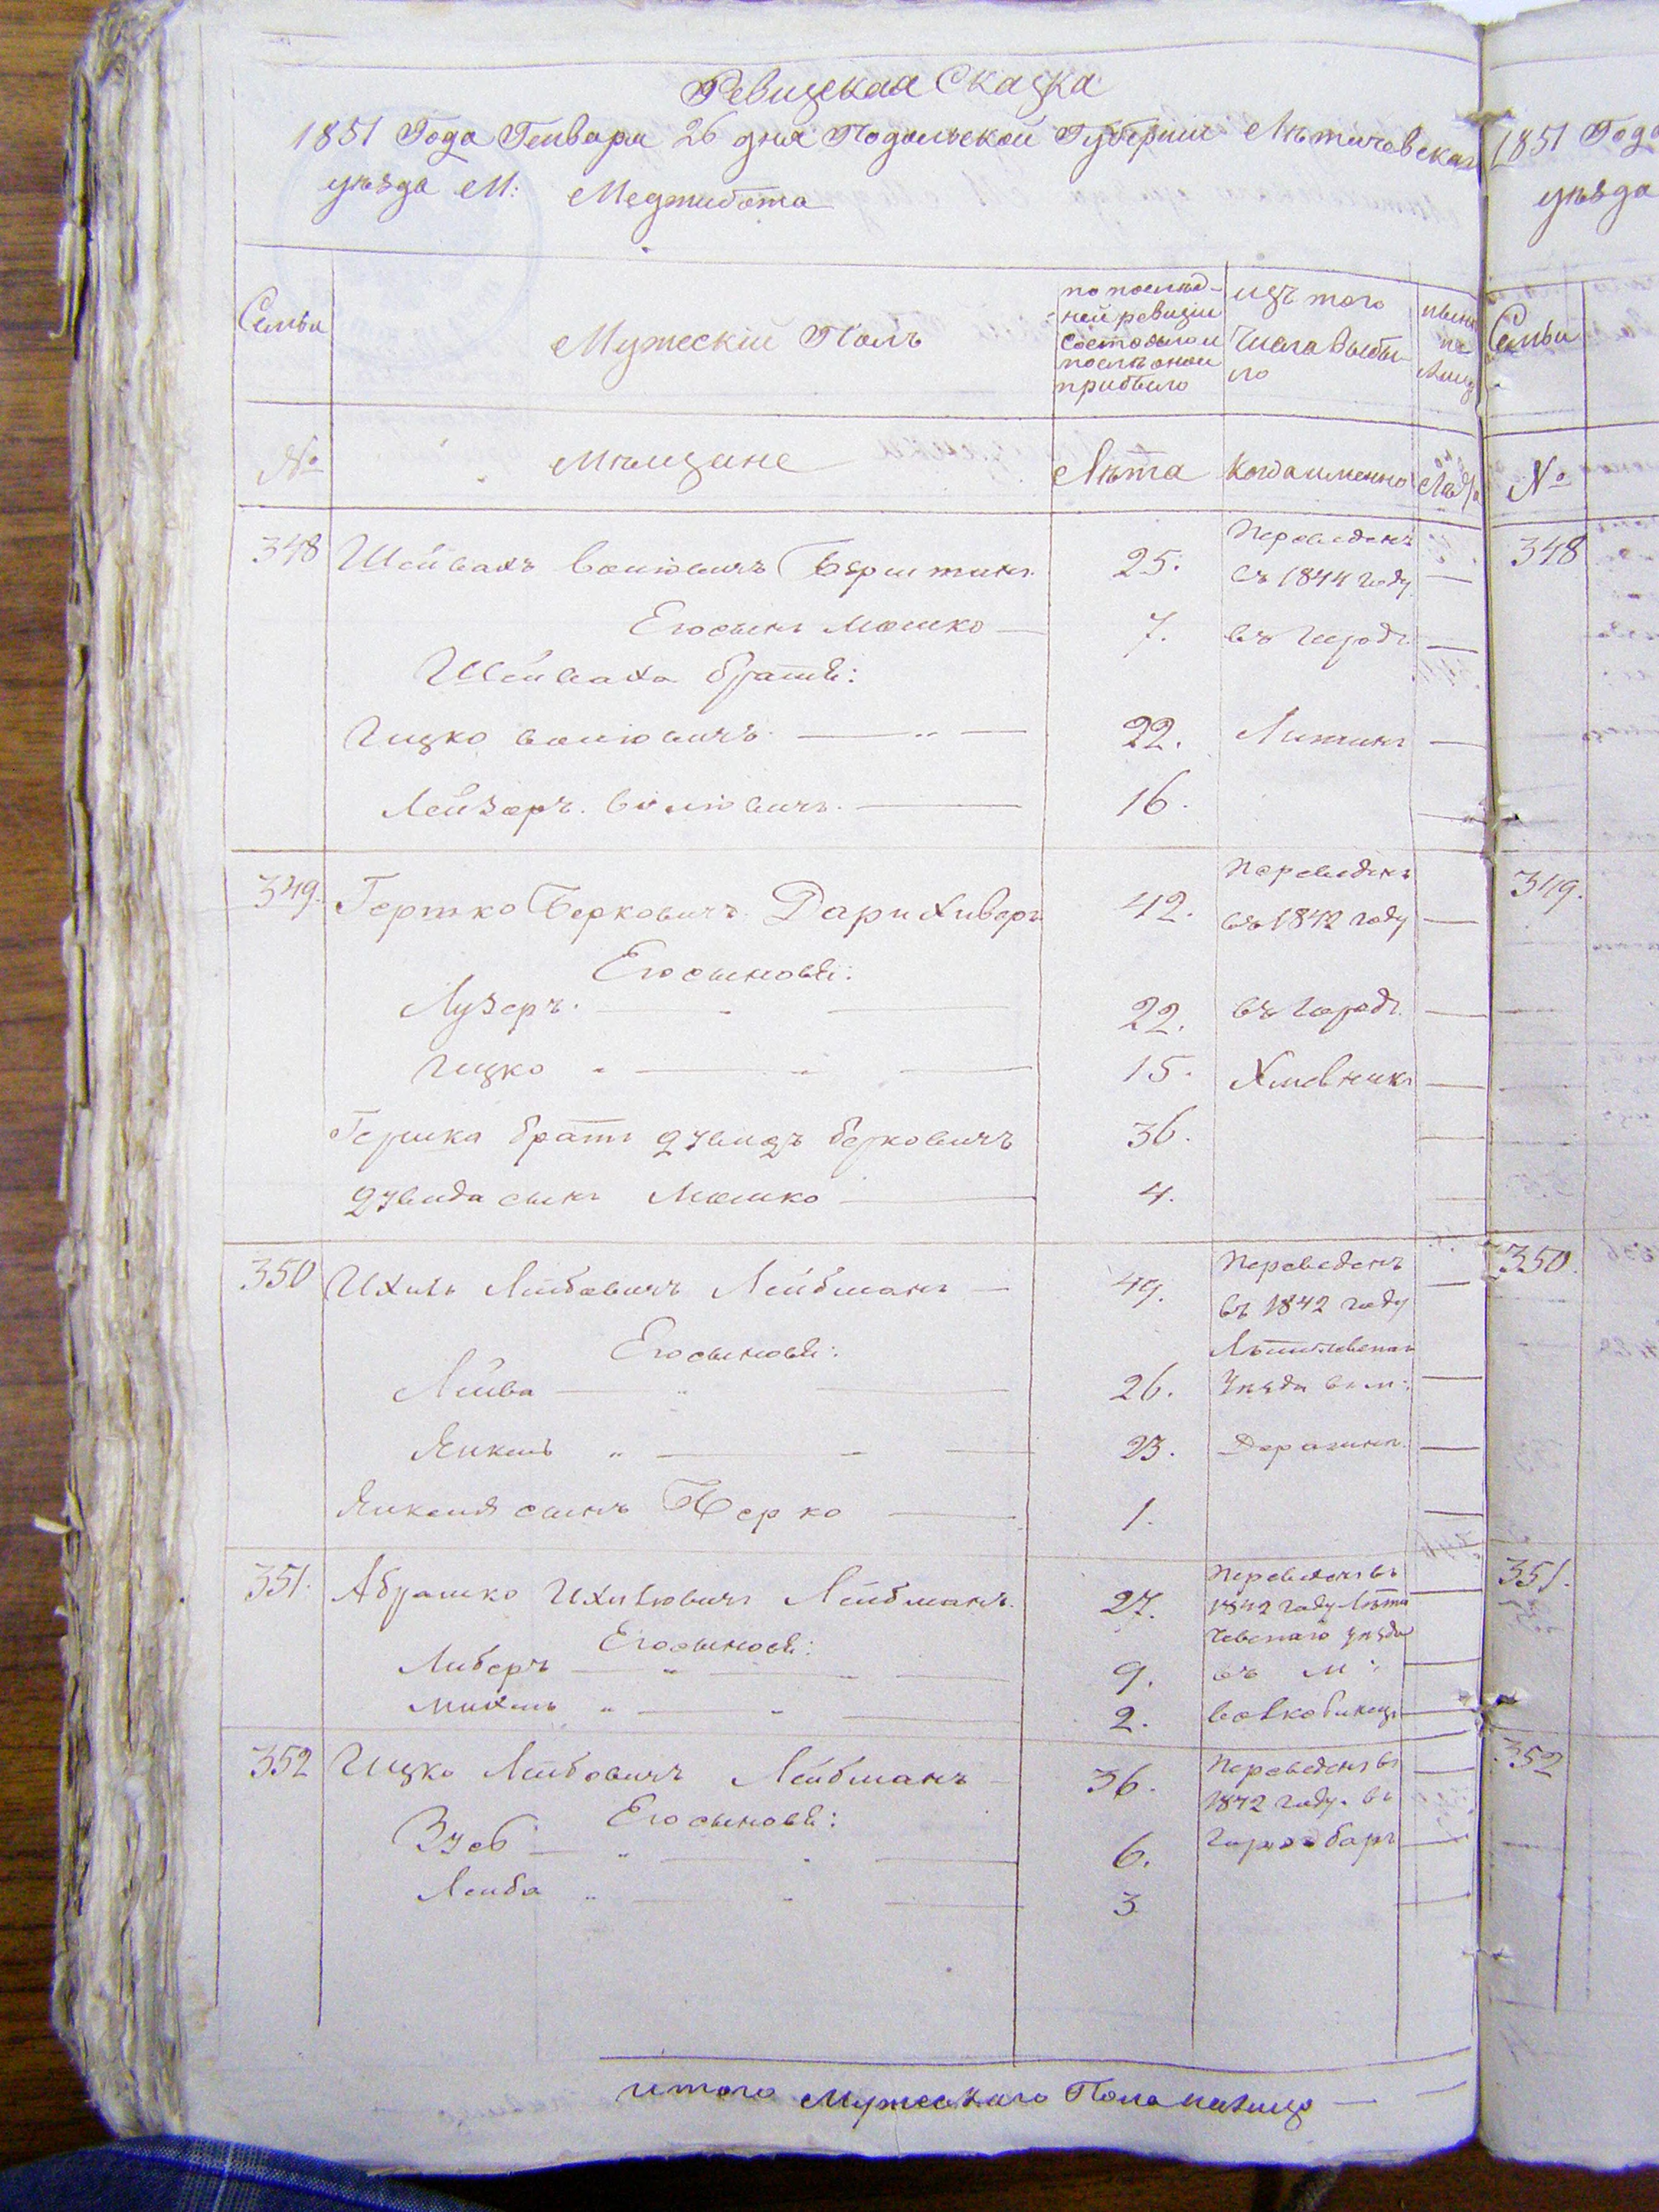 Ревизская Сказка
1851 Года Генваря 26 дня Подольской Губерніи Летичевскаго
уезда М: Меджибожа
Семьи
Мужескій Полъ
по послед-
ней ревизіи
состояло и
после оной
прибыло
изъ того
числа выбы-
ло
ныне
на
лицо
№
Мещане
Лета
когда именно
Лета
348
Шейвахъ Волковичъ Берштинъ
25.
Переведенъ
въ 1844 году
Его сынъ Мошко
7.
въ городъ
Шейваха братья:
Ицко Волковичъ
22.
Литинъ
Лейзеръ Волковичъ
16.
349.
Гершко Берковичъ Дарихиверъ
42.
Переведенъ
въ 1842 году
Его сыновья:
Лузеръ
22.
въ городъ
Ицко
15.
Хмельникъ
Гершка братъ Дувидъ Берковичъ
36.
Дувида сынъ Мошко
4.
350
Ихиль Лейбовичъ Лейбманъ
49.
Переведенъ
въ 1842 году
Его сыновья:
Летичевскаго
Лейба
26.
уезда въ м:
Янкель
23.
Деражня
Янкеля сынъ Берко
1.
351.
Абрашко Ихилювичъ Лейбманъ
27.
Переведенъ въ
1842 году Лети
Его сыновья:
чевскаго уезда
Либеръ
9.
въ м:
Михель
2.
Волковинцы
352
Ицко Лейбовичъ Лейбманъ
36.
Переведенъ въ
1842 году въ
Его сыновья:
городъ Баръ
6.
Лейба
3
итого Мужескаго Пола налицо
1851 Года
уезда
Семьи
№
348
349.
350.
351.
352